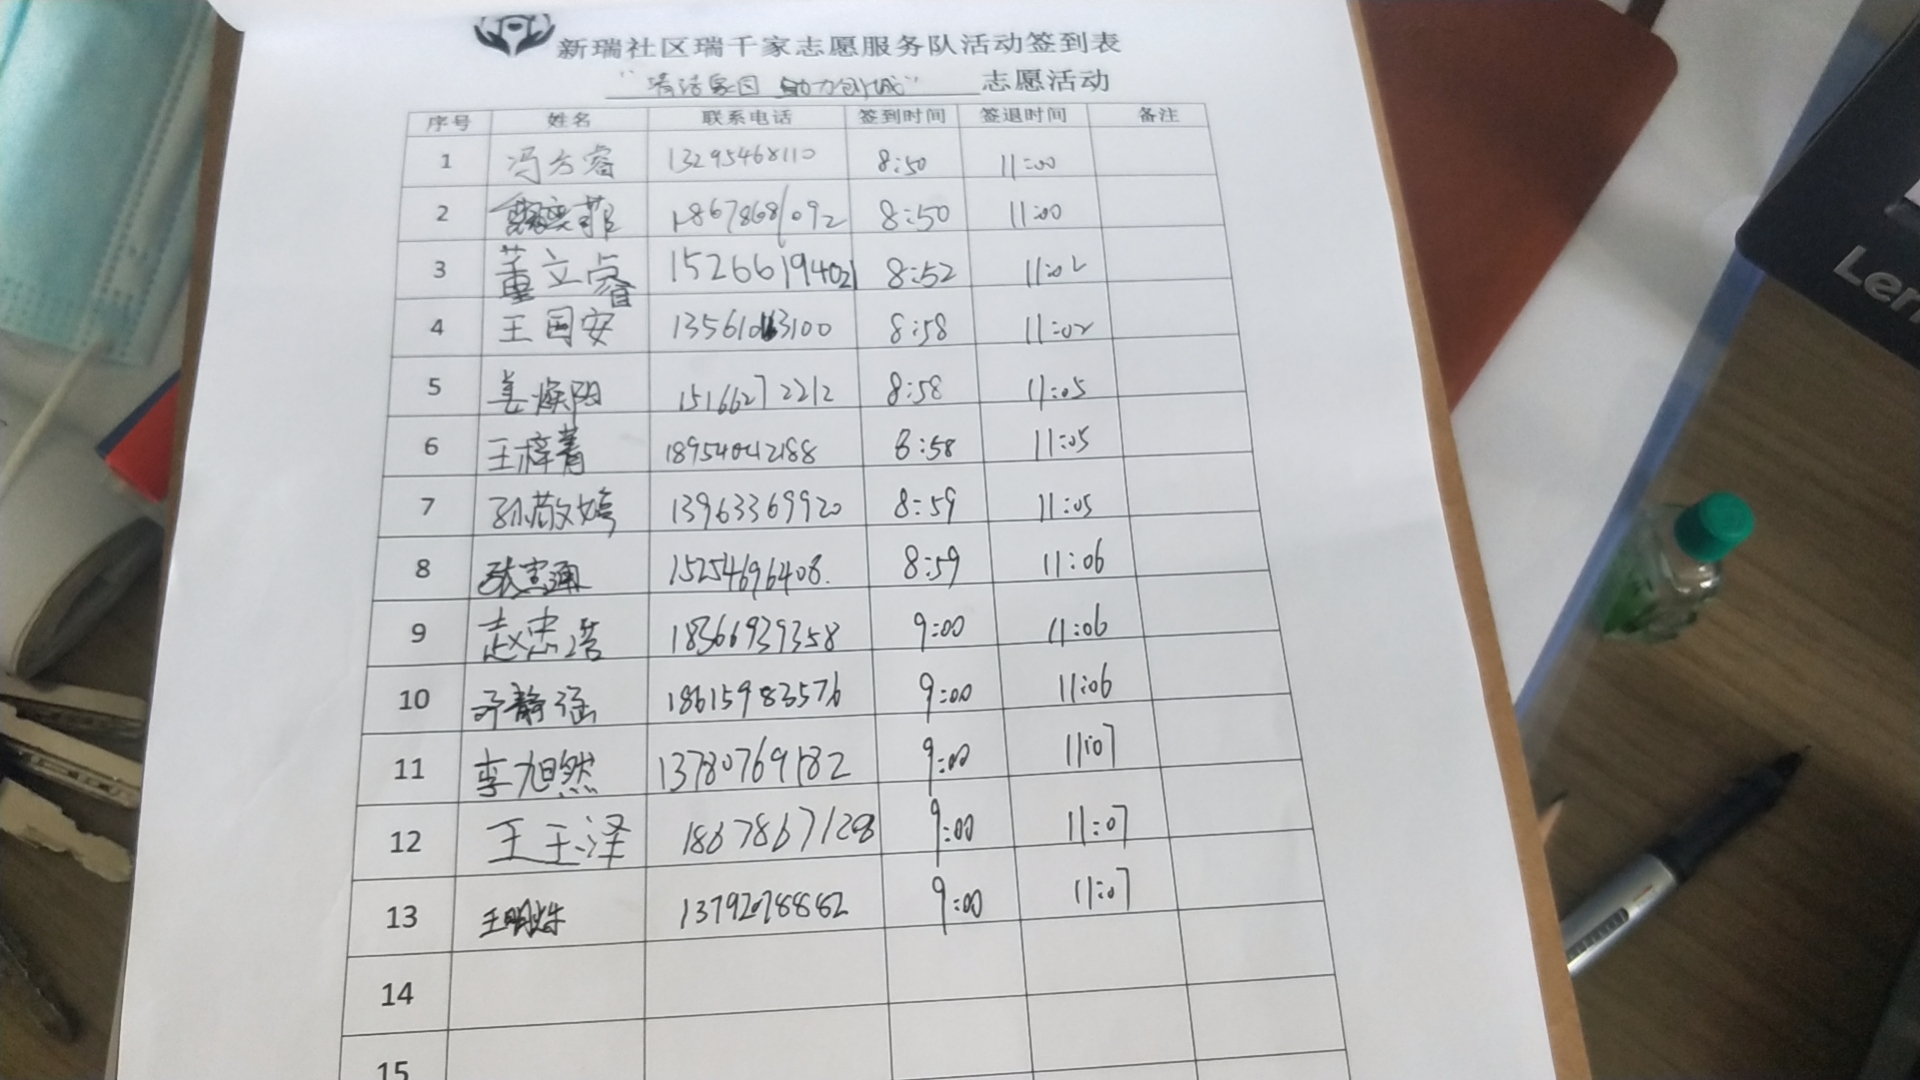 新瑞社区瑞千家志愿服务队活动签到表
“清洁家园 助力创城” 志愿活动
序号 姓名 联系电话 签到时间 签退时间 备注
1 冯方睿 13295468110 8:50 11:00
2 菲 18678681092 8:50 11:00
3 董立睿 15266194021 8:52 11:02
4 王国安 13561063100 8:58 11:02
5 姜焕阳 15166272212 8:58 11:05
6 王梓菁 18954042188 8:58 11:05
7 孙敬婷 13963369920 8:59 11:05
8 张宝通 15254696408. 8:59 11:06
9 赵忠浩 18366939358 9:00 11:06
10 静涵 18615983576 9:00 11:06
11 李旭然 13780769182 9:00 11:07
12 王玉泽 1867867128 9:00 11:07
13 王明 13792078882 9:00 11:07
14
15
Len